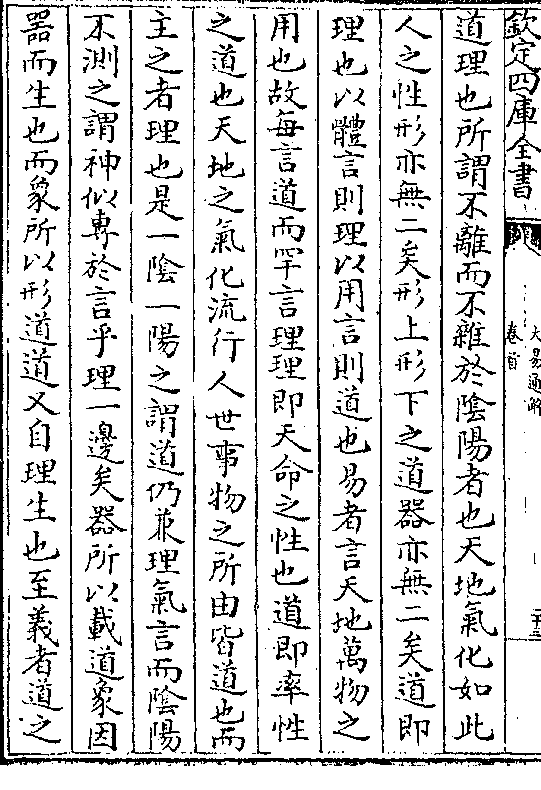 欽定四庫全書
大易通解
卷首
道理也所謂不離而不雜於陰陽者也天地氣化如此
人之性形亦無二矣形上形下之道器亦無二矣道即
理也以體言則理以用言則道也易者言天地萬物之
用也故每言道而罕言理理即天命之性也道即率性
之道也天地之氣化流行人世事物之所由皆道也而
主之者理也是一陰一陽之謂道仍兼理氣言而陰陽
不測之謂神似專於言乎理一邊矣器所以載道象因
器而生也而象所以形道道又自理生也至義者道之